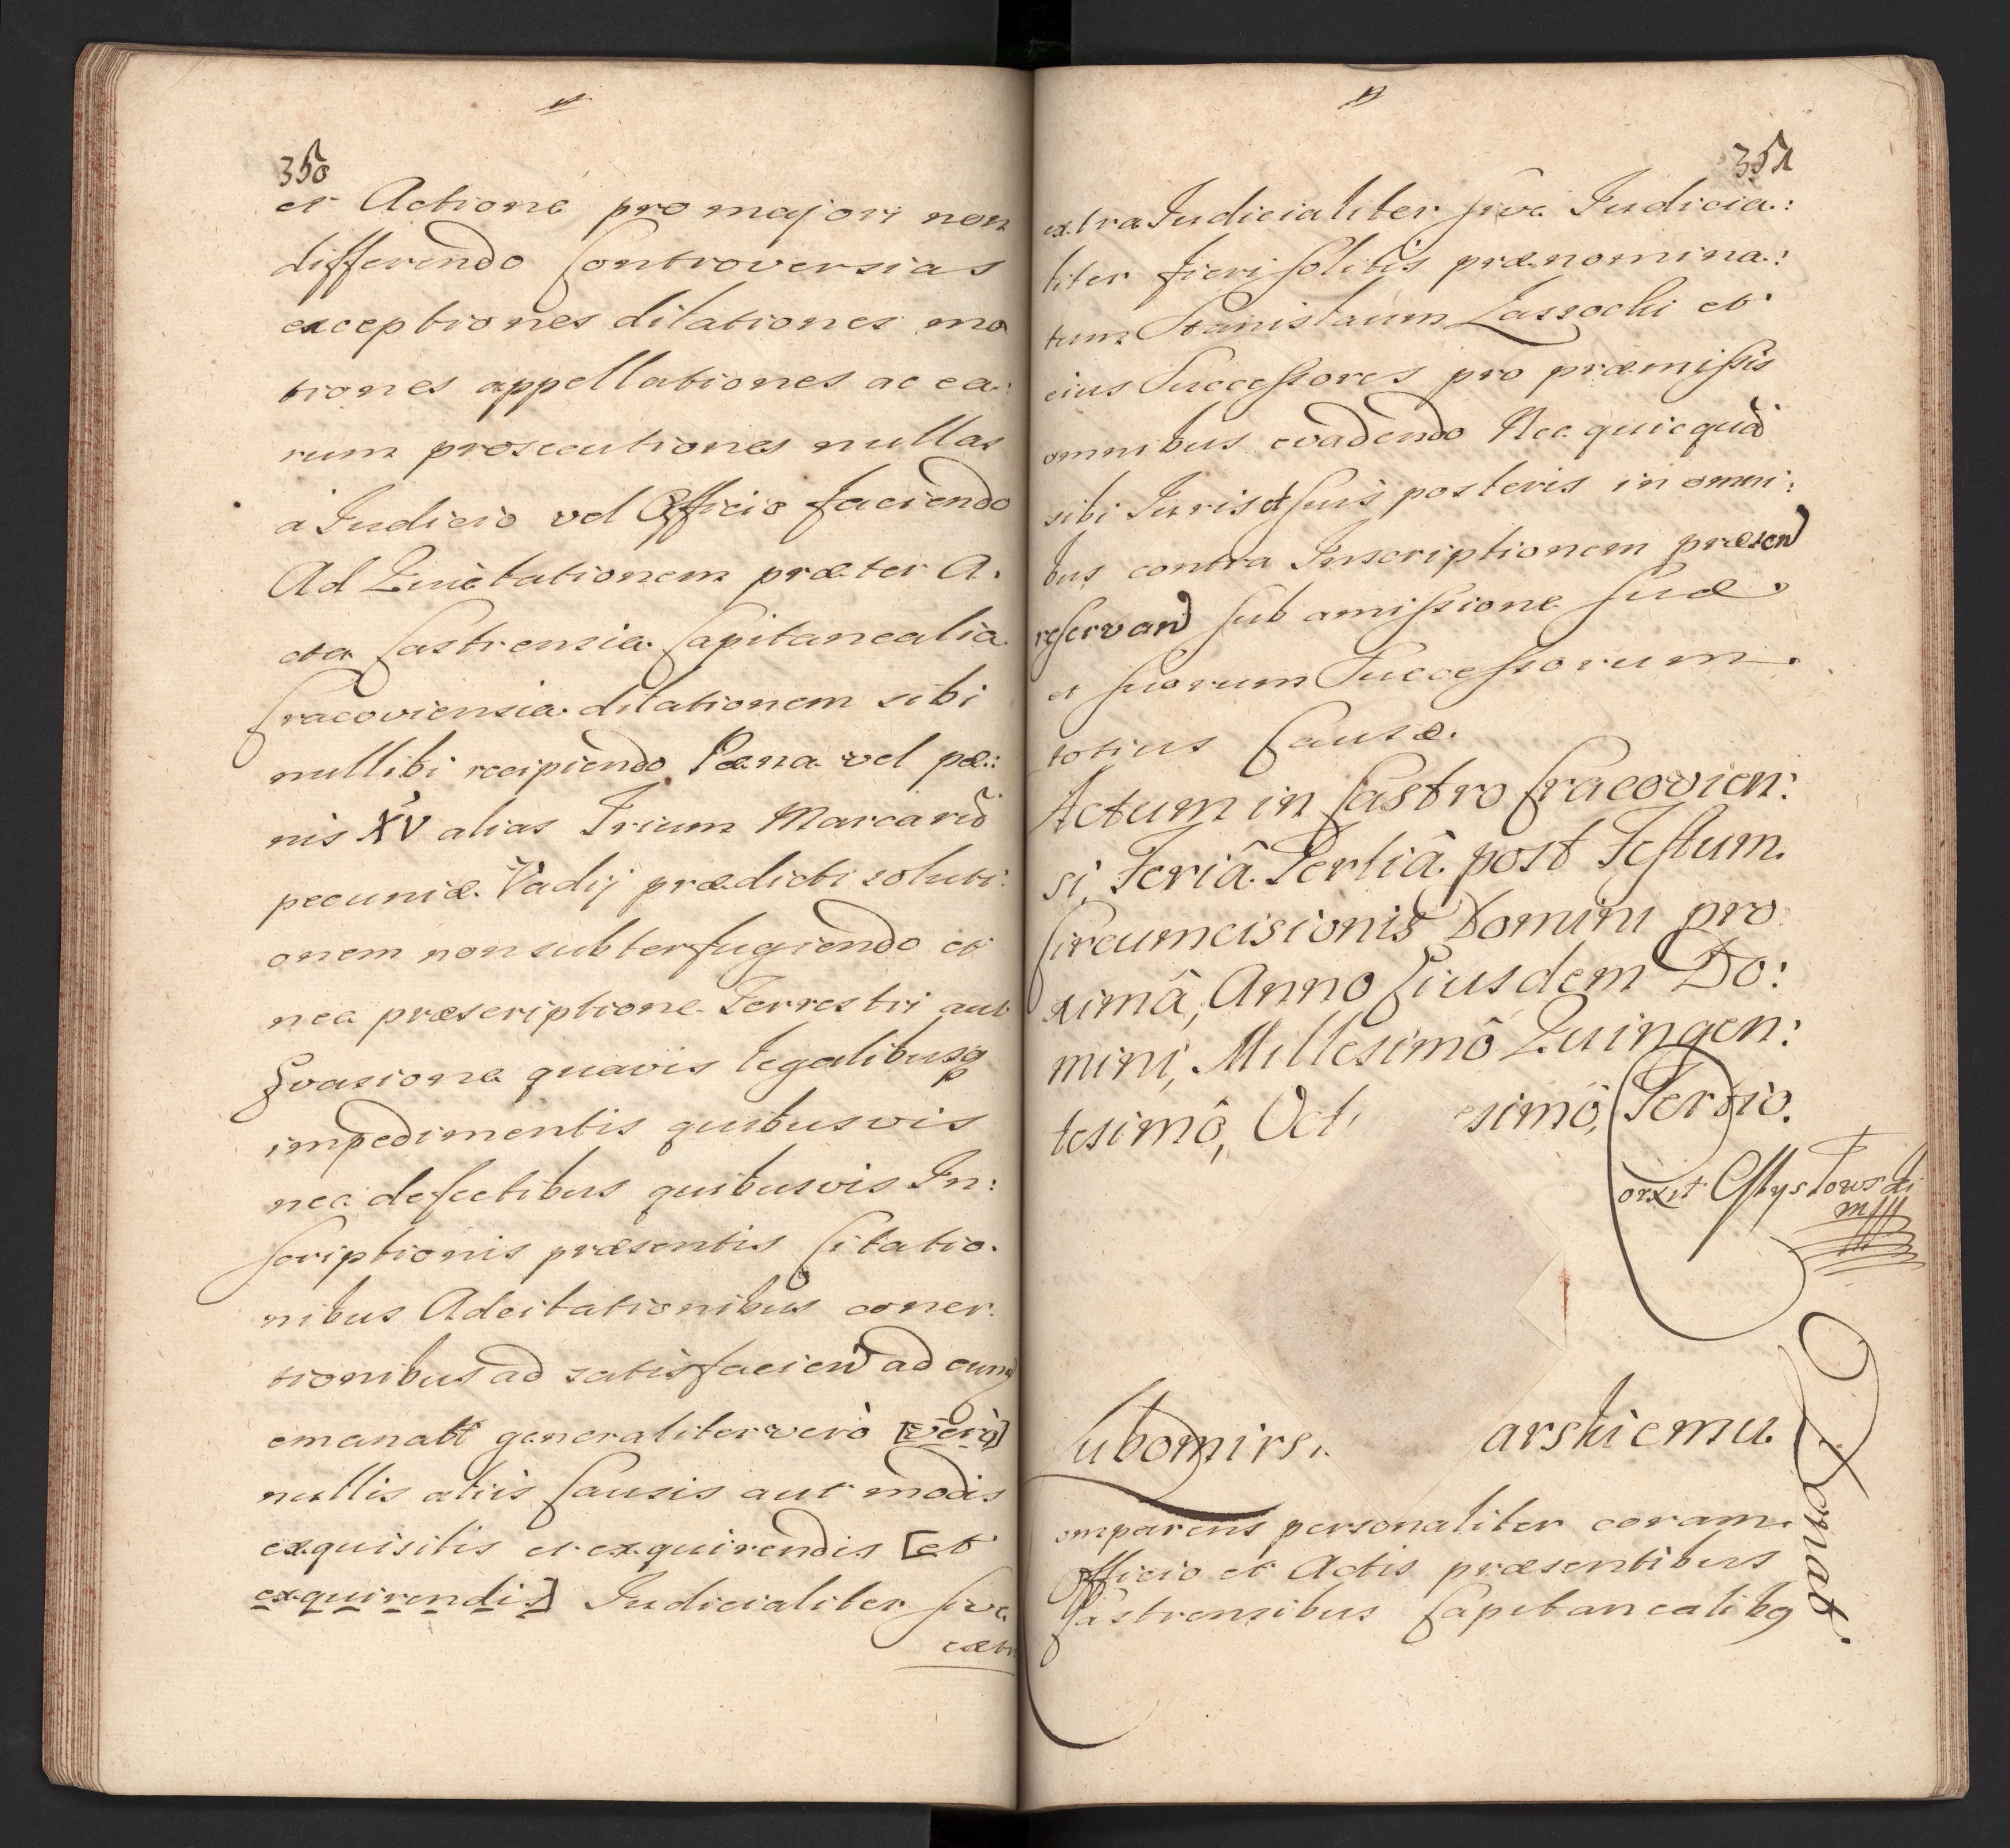 350
et Actione pro majori non
differendo Controversias
exceptiones dilationes mo
tiones appellationes ac ea:
rum prosecutiones nullas
à Judicio vel Officio faciendo
Ad Quietationem præter A.
cta Castrensia Capitanealia
Cracoviensia dilationem sibi
nullibi recipiendo Pæna vel pæ:
nis XV alias Trium Marcarũ
pecuniæ Vadij prædicti soluti:
onem non subterfugiendo et
nec præscriptione Terrestri aut
Evasione quavis legalibusq
impedimentis quibusvis
nec defectibus quibusvis In:
scriptionis præsentis Citatio.
nibus Adcitationibus coner
tionibus ad satisfacien ad eunđ
emanatt generaliter verò [verò]
nullis aliis Causis aut modis
exquisitis et exquirendis [et
exquirendis] Judicialiter sive
351
extraJudicialiter sive Judicia:
liter fieri solitis prænomina:
tum Stanislaum Lassochi et
eius Successores pro præmissis
omnibus evadendo Nec quicquã
sibi Juris et suis posteris in omni:
bus contra Inscriptionem præsen
reservan sub amissione suæ
et suorum Successorum
totius Causæ.
Actum in Castro Cracovien:
si, Feriâ Tertiâ post Festum
Circumcisionis Domini pro
ximâ, Anno Eiusdem Do:
mini, Millesimô Quingen:
tesimô, Oct esimô, Tertio.
mp
Lubomirs arskiemu
omparens personaliter coram
Officio et Actis præsentibus
Castrensibus Capitanealibg
Donat